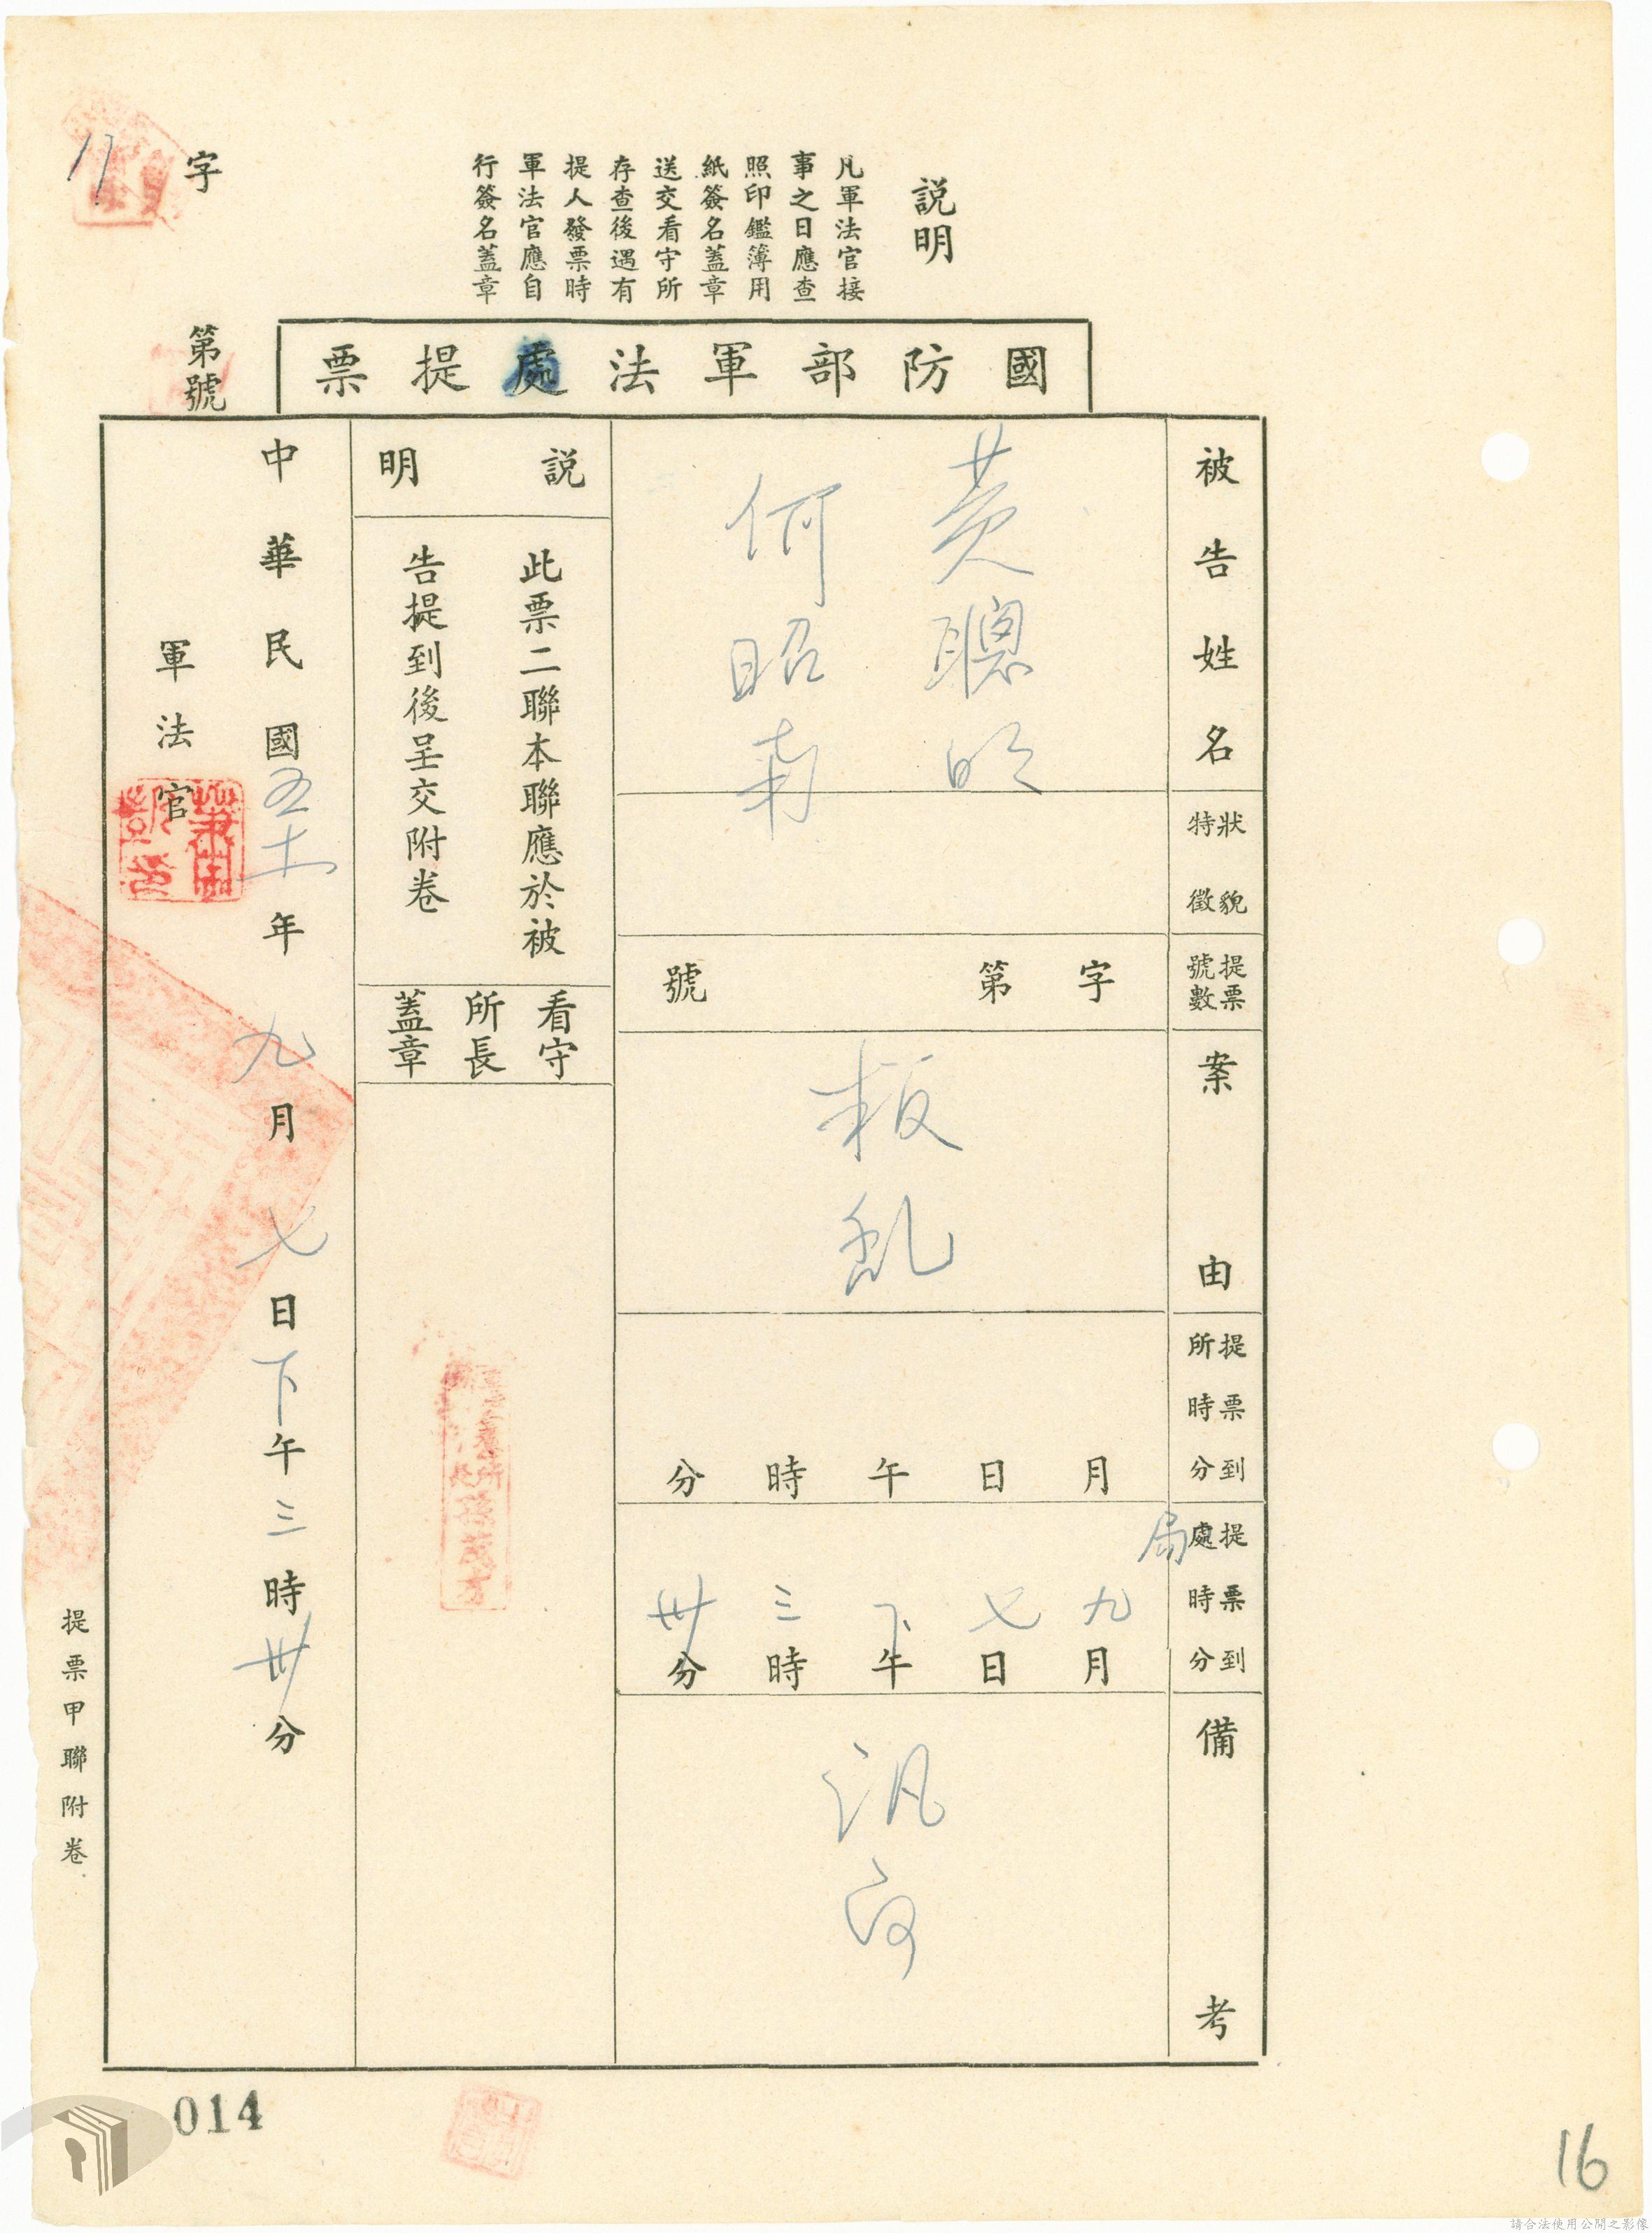 說明
凡軍法官接
事之日應查
照印鑑簿用
紙簽名蓋章
送交看守所
存查後遇有
提人發票時
軍法官應自
行簽名蓋章
字
第號
國防部軍法處提票
被告姓名
黃聰明
何昭南
狀貌
特徵
提票
號數
字第號
案由
叛亂
提票到
所時分
月日午時分
提票到
處時分
局
九月七日下午三時卅分
備考
訊問
說明
此票二聯本聯應於被
告提到後呈交附卷
看守
所長
蓋章
中華民國五十年九月七日下午三時卅分
軍法官
提票甲聯附卷
014
16
請合法使用公開之影像